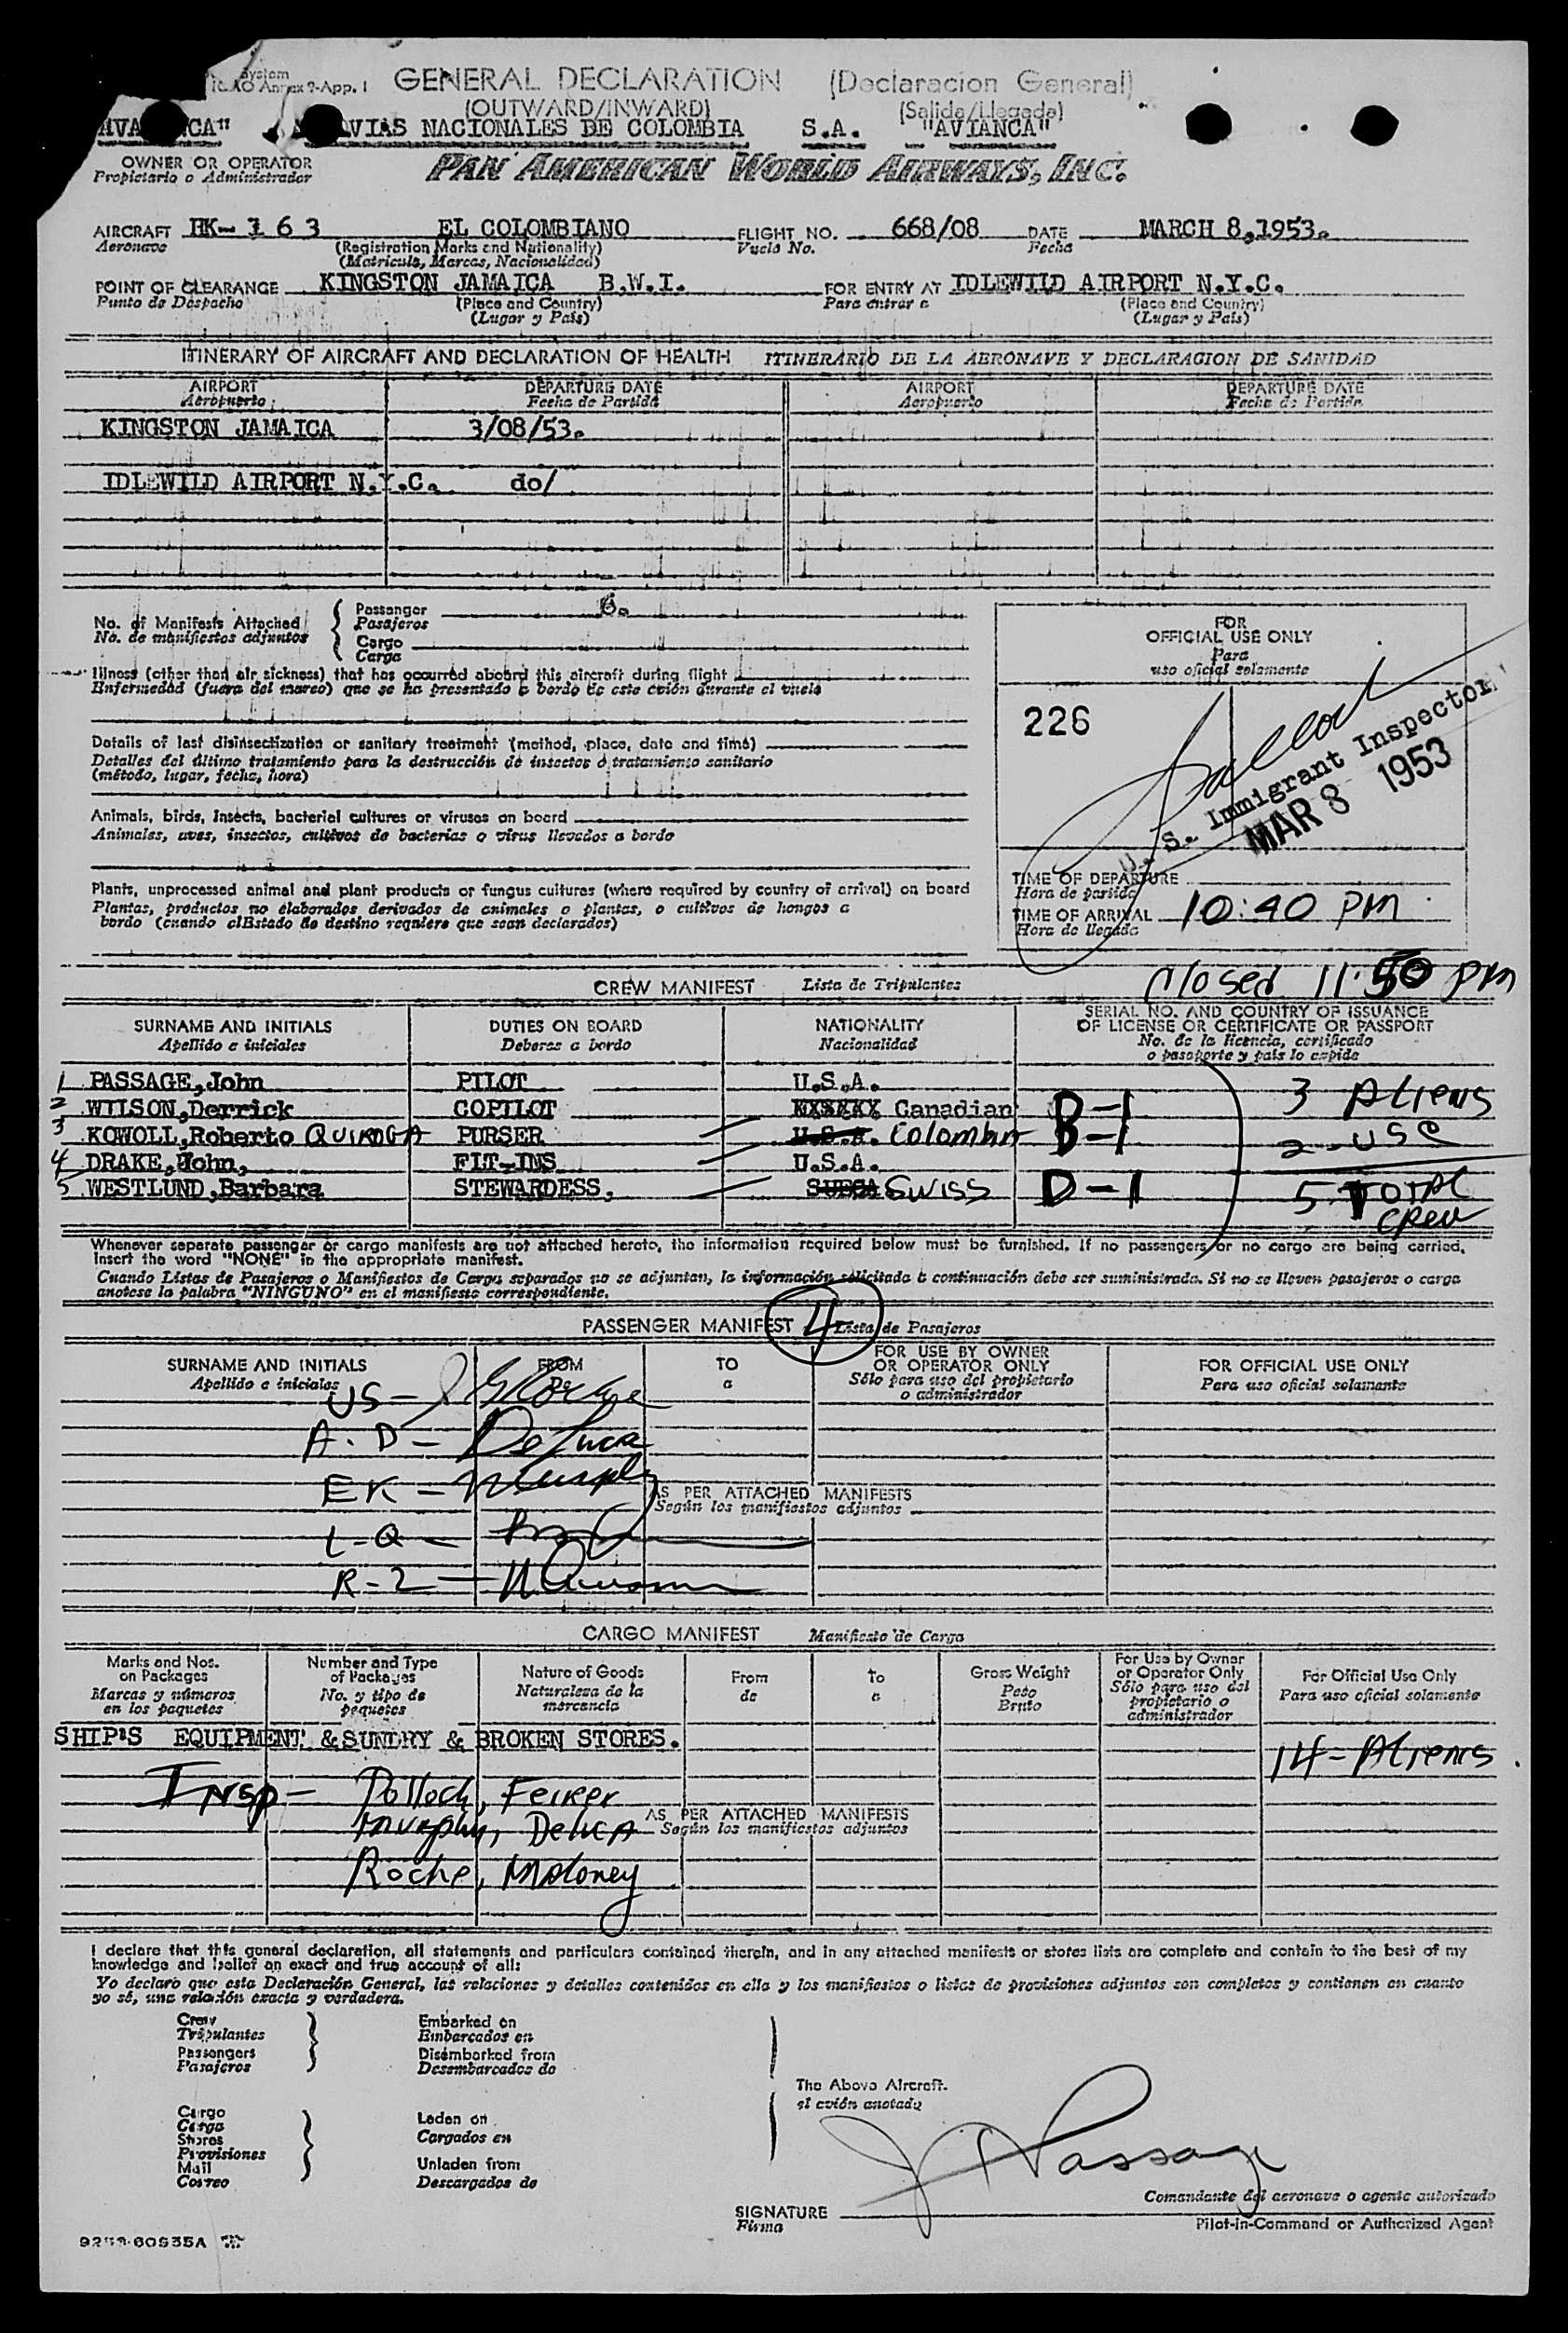 System
ICAO Annex 9-App. 1
GENERAL DECLARATION (Declaracion General)
(OUTWARD/INWARD) (Salida/Llegada)
NACIONALES DE COLOMBIA S.A. "AVIANCA"
OWNER OR OPERATOR
Propietario o Administrador
PAN AMERICAN WORLD AIRWAYS, INC.
AIRCRAFT HK-163 EL COLOMBIANO FLIGHT NO. 668/08 DATE MARCH 8,1953.
Aeronave (Registration Marks and Nationality) Vuelo No. Fecha
(Matricula, Marcas, Nacionalidad)
POINT OF CLEARANCE KINGSTON JAMAICA B.W.I. FOR ENTRY AT IDLEWILD AIRPORT N.Y.C.
Punto de Despacho (Place and Country) Para entrar a (Place and Country)
(Lugar y País) (Lugar y País)
ITINERARY OF AIRCRAFT AND DECLARATION OF HEALTH ITINERARIO DE LA AERONAVE Y DECLARACION DE SANIDAD
AIRPORT DEPARTURE DATE AIRPORT DEPARTURE DATE
Aeropuerto Fecha de Partida Aeropuerto Fecha de Partida
KINGSTON JAMAICA 3/08/53.
IDLEWILD AIRPORT N.Y.C. do/
No. of Manifests Attached
No. de manifiestos adjuntos
Passenger 6.
Pasajeros
Cargo
Carga
Illness (other than air sickness) that has occurred aboard this aircraft during flight
Enfermedad (fuera del mareo) que se ha presentado a bordo de este avión durante el vuelo
Details of last disinsectization or sanitary treatment (method, place, date and time)
Detalles del último tratamiento para la destrucción de insectos o tratamiento sanitario
(método, lugar, fecha, hora)
Animals, birds, insects, bacterial cultures or viruses on board
Animales, aves, insectos, cultivos de bacterias o virus llevados a bordo
Plants, unprocessed animal and plant products or fungus cultures (where required by country of arrival) on board
Plantas, productos no elaborados derivados de animales o plantas, o cultivos de hongos a
bordo (cuando el Estado de destino requiere que sean declarados)
FOR
OFFICIAL USE ONLY
Para
uso oficial solamente
226
U. S. Immigrant Inspector
MAR 8 1953
TIME OF DEPARTURE
Hora de partida
TIME OF ARRIVAL 10:40 PM
Hora de llegada
Closed 11:50 PM
CREW MANIFEST Lista de Tripulantes
SURNAME AND INITIALS DUTIES ON BOARD NATIONALITY SERIAL NO. AND COUNTRY OF ISSUANCE
OF LICENSE OR CERTIFICATE OR PASSPORT
Apellido e iniciales Deberes a bordo Nacionalidad No. de la licencia, certificado
o pasaporte y país lo expide
1 PASSAGE,John PILOT U.S.A. 3 Aliens
2 WILSON,Derrick COPILOT Canadian B-1
3 KOWOLL,Roberto QUIROGA PURSER U.S.A. Colombia B-1 2 - USC
4 DRAKE,John, FLT-INS U.S.A.
5 WESTLUND,Barbara STEWARDESS, SUECA SWISS D-1 5 TOTAL
Crew
Whenever separate passenger or cargo manifests are not attached hereto, the information required below must be furnished. If no passengers or no cargo are being carried,
insert the word "NONE" in the appropriate manifest.
Cuando Listas de Pasajeros o Manifiestos de Carga separados no se adjuntan, la información solicitada a continuación debe ser suministrada. Si no se lleven pasajeros o carga
anotese la palabra "NINGUNO" en el manifiesto correspondiente.
PASSENGER MANIFEST 4 Lista de Pasajeros
SURNAME AND INITIALS FROM TO FOR USE BY OWNER
OR OPERATOR ONLY FOR OFFICIAL USE ONLY
Apellido e iniciales De a Sólo para uso del propietario
o administrador Para uso oficial solamente
US -
A. D - DeLuca
EK - Murphy
AS PER ATTACHED MANIFESTS
Según los manifiestos adjuntos
L-Q -
R-Z -
CARGO MANIFEST Manifiesto de Carga
Marks and Nos.
on Packages
Marcas y números
en los paquetes
Number and Type
of Packages
No. y tipo de
paquetes
Nature of Goods
Naturaleza de la
mercancia
From
de
To
a
Gross Weight
Peso
Bruto
For Use by Owner
or Operator Only
Sólo para uso del
propietario o
administrador
For Official Use Only
Para uso oficial solamente
SHIP'S EQUIPMENT & SUNDRY & BROKEN STORES.
14 - Aliens
Insp - Pollock, Feiker
Murphy, DeLucA
AS PER ATTACHED MANIFESTS
Según los manifiestos adjuntos
Roche, Moloney
I declare that this general declaration, all statements and particulars contained therein, and in any attached manifests or stores lists are complete and contain to the best of my
knowledge and belief an exact and true account of all:
Yo declaro que esta Declaración General, las relaciones y detalles contenidos en ella y los manifiestos o listas de provisiones adjuntos son completos y contienen en cuanto
yo sé, una relación exacta y verdadera.
Crew
Tripulantes
Passengers
Pasajeros
Embarked on
Embarcados en
Disembarked from
Desembarcados de
The Above Aircraft.
el avión anotado
Cargo
Carga
Stores
Provisiones
Mail
Correo
Laden on
Cargados en
Unladen from
Descargados de
J Passage
Comandante del aeronave o agente autorizado
SIGNATURE
Firma
Pilot-in-Command or Authorized Agent